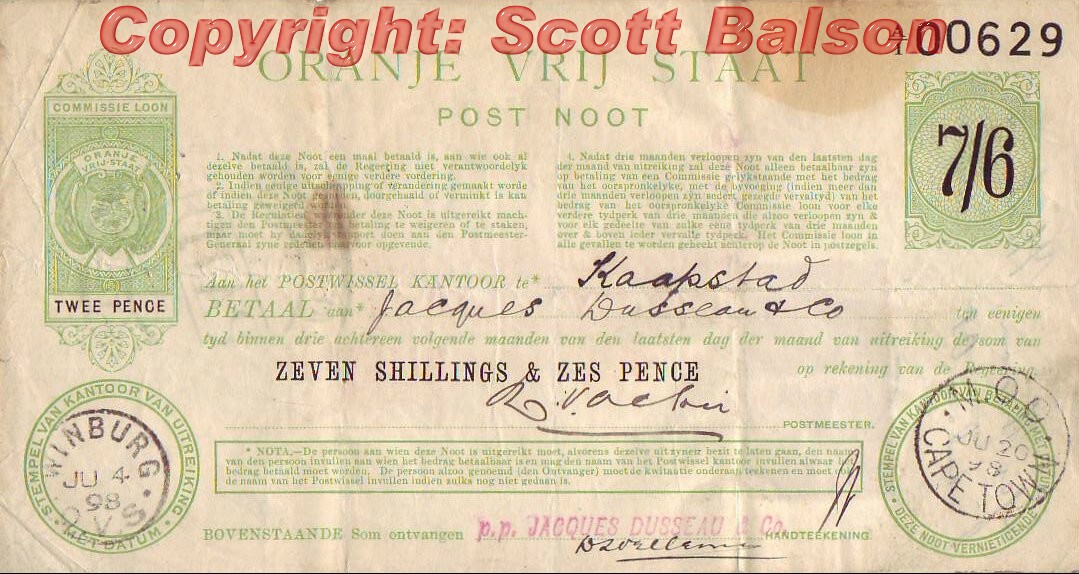 Copyright: Scott Balson
A/1 00629
ORANJE VRIJ STAAT
POST NOOT
COMMISSIE LOON
ORANJE
VRIJ-STAAT
TWEE PENCE
7/6
1. Nadat deze Noot een maal betaald is, aan wie ook al
dezelve betaald is, zal de Regeering niet verantwoordelyk
gehouden worden voor eenige verdere vordering.
2. Indien eenige uitschrapping of verandering gemaakt worde
of indien deze Noot gesneden, doorgehaald of verminkt is kan
betaling geweigerd worden.
3. De Regulaties onder deze Noot is uitgereikt mach-
tigen den Postmeester betaling te weigeren of te staken,
maar moet hy daarvan rapport doen aan den Postmeester-
Generaal zyne redenen voor opgevende.
4. Nadat drie maanden verloopen zyn van den laatsten dag
der maand van uitreiking zal deze Noot alleen betaalbaar zyn
op betaling van een Commissie gelykstaande met het bedrag
van het oorspronkelyke, met de byvoeging (indien meer dan
drie maanden verloopen zyn sedert gezegde vervaltyd) van het
bedrag van het oorspronkelyke Commissie loon voor elke
verdere tydperk van drie maanden die alzoo verloopen zyn &
voor elk gedeelte van zulke eene tydperk van drie maanden
over & boven ieder verder tydperk. Het Commissie loon in
alle gevallen te worden gehecht achterop de Noot in postzegels.
Aan het POSTWISSEL KANTOOR te* Kaapstad
BETAAL aan* Jacques Dusseau & Co ten eenigen
tyd binnen drie achtereen volgende maanden van den laatsten dag der maand van uitreiking de som van
ZEVEN SHILLINGS & ZES PENCE op rekening van de Regeering.
POSTMEESTER.
* NOTA.—De persoon aan wien deze Noot is uitgereikt moet, alvorens dezelve uit zyner bezit te laten gaan, den naam
van den persoon invullen aan wien het bedrag betaalbaar is en mag den naam van het Postwissel kantoor invullen alwaar het
bedrag betaald moet worden. De persoon alzoo genoemd (den Ontvanger) moet de kwitantie onderaan teekenen en moet ook
de naam van het Postwissel invullen indien zulks nog niet gedaan is.
BOVENSTAANDE Som ontvangen p.p. JACQUES DUSSEAU & Co. HANDTEEKENING.
STEMPEL VAN KANTOOR VAN UITREIKING
MET DATUM
WINBURG
JU 4
98
O.V.S
STEMPEL VAN KANTOOR VAN BETALING
DEZE NOOT VERNIETIGENDE
M.O.O.
JU 20
98
CAPE TOWN